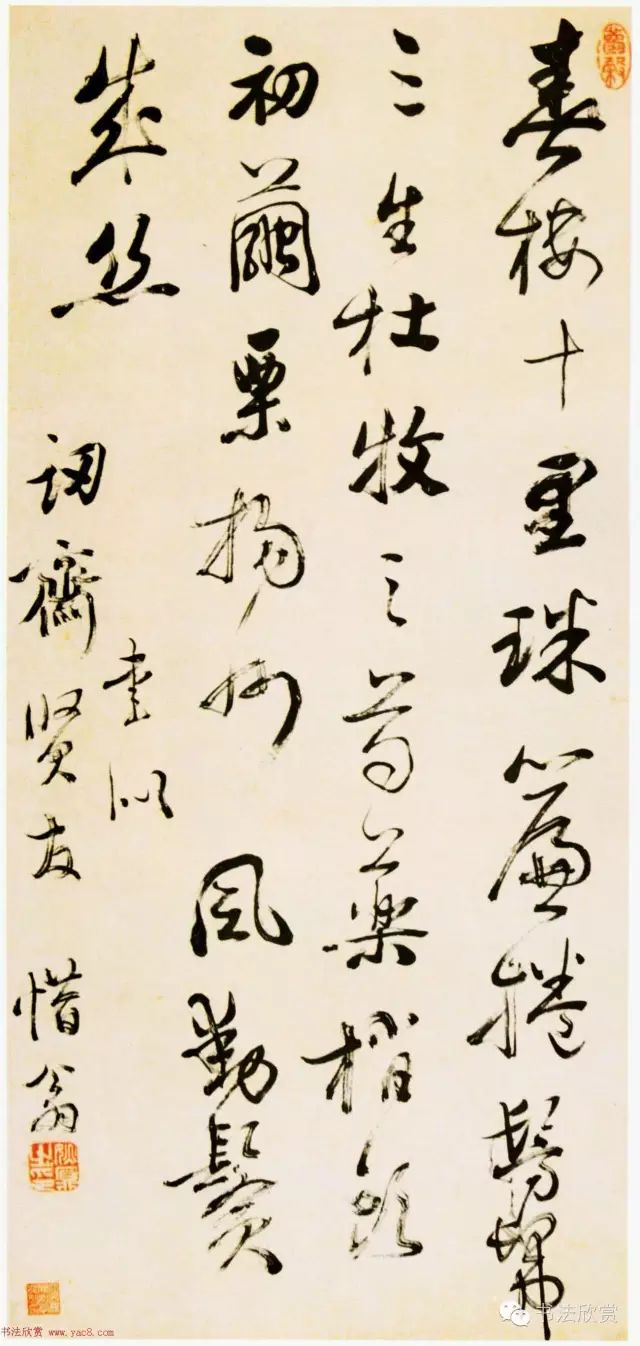 春樓十里珠簾捲髣髴
三生杜牧之芍藥梢頭
初繭栗揚州風動鬢
成絲
書似
訒齋賢友 惜翁
书法欣赏
书法欣赏 www.yac8.com